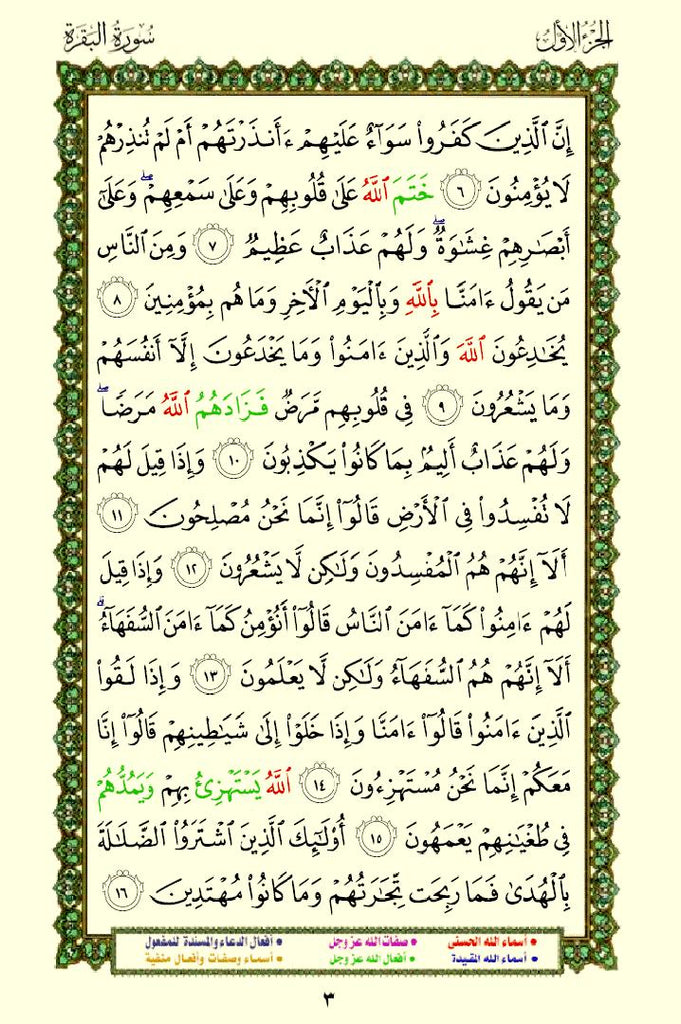 الجزء الأول
سورة البقرة
إِنَّ ٱلَّذِينَ كَفَرُوا۟ سَوَآءٌ عَلَيْهِمْ ءَأَنذَرْتَهُمْ أَمْ لَمْ تُنذِرْهُمْ
لَا يُؤْمِنُونَ ٦ خَتَمَ ٱللَّهُ عَلَىٰ قُلُوبِهِمْ وَعَلَىٰ سَمْعِهِمْ ۖ وَعَلَىٰٓ
أَبْصَٰرِهِمْ غِشَٰوَةٌ ۖ وَلَهُمْ عَذَابٌ عَظِيمٌ ٧ وَمِنَ ٱلنَّاسِ
مَن يَقُولُ ءَامَنَّا بِٱللَّهِ وَبِٱلْيَوْمِ ٱلْأَخِرِ وَمَا هُم بِمُؤْمِنِينَ ٨
يُخَٰدِعُونَ ٱللَّهَ وَٱلَّذِينَ ءَامَنُوا۟ وَمَا يَخْدَعُونَ إِلَّآ أَنفُسَهُمْ
وَمَا يَشْعُرُونَ ٩ فِى قُلُوبِهِم مَّرَضٌ فَزَادَهُمُ ٱللَّهُ مَرَضًا ۖ
وَلَهُمْ عَذَابٌ أَلِيمٌۢ بِمَا كَانُوا۟ يَكْذِبُونَ ١٠ وَإِذَا قِيلَ لَهُمْ
لَا تُفْسِدُوا۟ فِى ٱلْأَرْضِ قَالُوٓا۟ إِنَّمَا نَحْنُ مُصْلِحُونَ ١١
أَلَآ إِنَّهُمْ هُمُ ٱلْمُفْسِدُونَ وَلَٰكِن لَّا يَشْعُرُونَ ١٢ وَإِذَا قِيلَ
لَهُمْ ءَامِنُوا۟ كَمَآ ءَامَنَ ٱلنَّاسُ قَالُوٓا۟ أَنُؤْمِنُ كَمَآ ءَامَنَ ٱلسُّفَهَآءُ ۗ
أَلَآ إِنَّهُمْ هُمُ ٱلسُّفَهَآءُ وَلَٰكِن لَّا يَعْلَمُونَ ١٣ وَإِذَا لَقُوا۟
ٱلَّذِينَ ءَامَنُوا۟ قَالُوٓا۟ ءَامَنَّا وَإِذَا خَلَوْا۟ إِلَىٰ شَيَٰطِينِهِمْ قَالُوٓا۟ إِنَّا
مَعَكُمْ إِنَّمَا نَحْنُ مُسْتَهْزِءُونَ ١٤ ٱللَّهُ يَسْتَهْزِئُ بِهِمْ وَيَمُدُّهُمْ
فِى طُغْيَٰنِهِمْ يَعْمَهُونَ ١٥ أُو۟لَٰٓئِكَ ٱلَّذِينَ ٱشْتَرَوُا۟ ٱلضَّلَٰلَةَ
بِٱلْهُدَىٰ فَمَا رَبِحَت تِّجَٰرَتُهُمْ وَمَا كَانُوا۟ مُهْتَدِينَ ١٦
• أسماء الله الحسنى • صفات الله عز وجل • أفعال الدعاء والمسندة للمفعول
• أسماء الله المقيدة • أفعال الله عز وجل • أسماء وصفات وأفعال منفية
٣